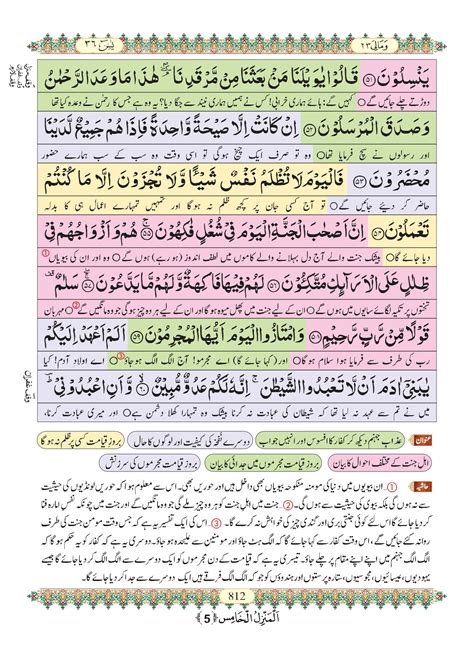 وَمَالِيَ ٢٣
يٰسٓ ٣٦
يَنْسِلُوْنَ ﴿٥١﴾ قَالُوْا يٰوَيْلَنَا مَنْۢ بَعَثَنَا مِنْ مَّرْقَدِنَا ۘ هٰذَا مَا وَعَدَ الرَّحْمٰنُ
دوڑتے چلے جائیں گے ○ کہیں گے: ہائے ہماری خرابی! کس نے ہمیں ہماری نیند سے جگا دیا؟ یہ وہ ہے جس کا رحمٰن نے وعدہ کیا تھا
وَصَدَقَ الْمُرْسَلُوْنَ ﴿٥٢﴾ اِنْ كَانَتْ اِلَّا صَيْحَةً وَّاحِدَةً فَاِذَا هُمْ جَمِيْعٌ لَّدَيْنَا
اور رسولوں نے سچ فرمایا تھا ○ وہ تو صرف ایک چیخ ہوگی تو اسی وقت وہ سب کے سب ہمارے حضور
مُحْضَرُوْنَ ﴿٥٣﴾ فَالْيَوْمَ لَا تُظْلَمُ نَفْسٌ شَيْـًٔا وَّلَا تُجْزَوْنَ اِلَّا مَا كُنْتُمْ
حاضر کر دئیے جائیں گے ○ تو آج کسی جان پر کچھ ظلم نہ ہوگا اور تمہیں تمہارے اعمال ہی کا بدلہ
تَعْمَلُوْنَ ﴿٥٤﴾ اِنَّ اَصْحٰبَ الْجَنَّةِ الْيَوْمَ فِيْ شُغُلٍ فٰكِهُوْنَ ﴿٥٥﴾ هُمْ وَاَزْوَاجُهُمْ فِيْ
دیا جائے گا ○ بیشک جنت والے آج دل بہلانے والے کاموں میں لطف اندوز (ہو رہے) ہوں گے ○ وہ اور ان کی بیویاں ①
ظِلٰلٍ عَلَى الْاَرَآىِٕكِ مُتَّكِـُٔوْنَ ﴿٥٦﴾ لَهُمْ فِيْهَا فَاكِهَةٌ وَّلَهُمْ مَّا يَدَّعُوْنَ ﴿٥٧﴾ سَلٰمٌ ۫
تختوں پر تکیہ لگائے سایوں میں ہوں گے ○ ان کے لیے جنت میں پھل میوہ ہوگا اور ان کے لیے ہر وہ چیز ہوگی جو وہ مانگیں گے ② ○ مہربان
قَوْلًا مِّنْ رَّبٍّ رَّحِيْمٍ ﴿٥٨﴾ وَامْتَازُوا الْيَوْمَ اَيُّهَا الْمُجْرِمُوْنَ ﴿٥٩﴾ اَلَمْ اَعْهَدْ اِلَيْكُمْ
رب کی طرف سے فرمایا ہوا سلام ہوگا ○ اور (کہا جائے گا) اے مجرمو! آج الگ الگ ہو جاؤ ③ ○ اے اولادِ آدم! کیا
يٰبَنِيْۤ اٰدَمَ اَنْ لَّا تَعْبُدُوا الشَّيْطٰنَ ۚ اِنَّهٗ لَكُمْ عَدُوٌّ مُّبِيْنٌ ﴿٦٠﴾ وَّاَنِ اعْبُدُوْنِيْ ؕ
میں نے تم سے عہد نہ لیا تھا کہ شیطان کی عبادت نہ کرنا بیشک وہ تمہارا کھلا دشمن ہے ○ اور میری عبادت کرنا،
عنوان عذابِ جہنم دیکھ کر کفار کا افسوس اور انہیں جواب دوسرے نفخے کی کیفیت اور لوگوں کا حال بروزِ قیامت کسی پر ظلم نہ ہوگا
اہلِ جنت کے مختلف احوال کا بیان بروزِ قیامت مجرموں میں جدائی کا بیان بروزِ قیامت مجرموں کی سرزنش
حاشیہ ①۔ ان بیویوں میں دنیا کی مومنہ منکوحہ بیویاں بھی داخل ہیں اور حوریں بھی۔ اس سے معلوم ہوا کہ حوریں لونڈیوں کی حیثیت
سے نہ ہوں گی بلکہ بیوی کی حیثیت سے ہوں گی۔ ②۔ جنتی جو چیز مانگیں گے ان کو جنت میں ہر وہ چیز ملے گی جو وہ مانگیں گے اور جنت میں چونکہ نفس امارہ فنا
کر دیا جائے گا اس لئے کوئی جنتی بری اور گندی چیز کی خواہش نہ کرے گا۔ ③۔ اس کی ایک تفسیر یہ ہے کہ جس وقت مومن جنت کی طرف
روانہ کئے جائیں گے، اس وقت کفار سے کہا جائے گا کہ الگ ہٹ جاؤ اور مومنین سے علیحدہ ہو جاؤ۔ دوسری یہ ہے کہ کفار کو حکم ہوگا کہ
الگ الگ جہنم میں اپنے اپنے مقام پر چلے جاؤ۔ تیسری یہ ہے کہ قیامت کے دن مجرموں کو ایک دوسرے سے الگ الگ کر دیا جائے گا جیسے
یہودیوں، عیسائیوں، مجوسیوں، ستارہ پرستوں اور ہندوؤں کو جو کہ الگ الگ فرقے ہیں ایک دوسرے سے جدا کر دیا جائے گا۔
812
اَلْمَنْزِلُ الْخَامِس ﴿5﴾